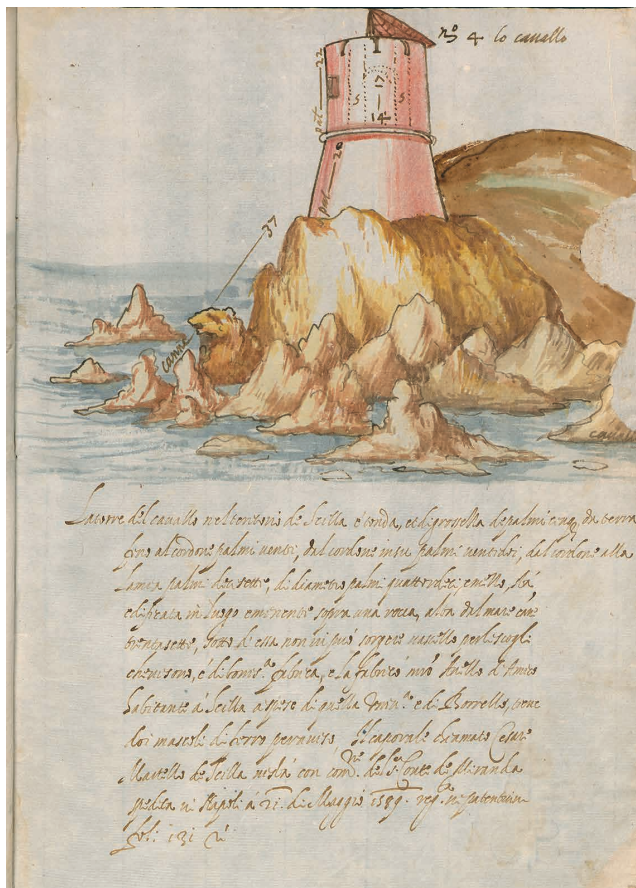 nº 4 lo cavallo
pal. 22
5
17
5
14
pal. 20
37
canne
caval
La torre del cavallo nel teritorio de Scilla é tonda, et di grossessa de palmi cinq, da terra
fino al cordone palmi venti, dal cordone in su palmi ventidoi, dal cordone alla
lamia palmi decesette, di diametro palmi quattordeci, é
edificata in luogo eminente sopra una rocca, alta dal mare cane
trentasette, sotto d'essa non vi può sorgere vascello per li scogli
che vi sono, é di fabrica, e la fabricò mro Anello d'Amico
habitante á Scilla a spese di quella e di Borrello, tiene
doi mascoli di ferro per aviso Il caporale chiamato Cesare
Martello de Scilla vi stà con del Sr Conte de Miranda
spedita in Napoli á 21. di Maggio 1589. regª in
fol: 131